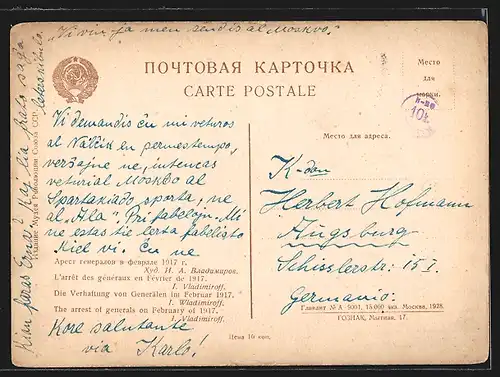 "Vi vin ja men sendis al Moskvo."
ПОЧТОВАЯ КАРТОЧКА
CARTE POSTALE
Место
для
марки.
Место для адреса.
Vi demandis ĉu mi veturos
al en permestempo,
verŝajne ne, intencas
veturi al Moskvo al
Spartakiado sporta, ne
al "Ala". Pri fabeloj. Mi
ne estas tie lerta fabelisto
Kiel vi. Ĉu ne
Арест генералов в феврале 1917 г.
Худ. И. А. Владимиров.
L'arrêt des généraux en Février de 1917.
I. Vladimiroff.
Die Verhaftung von Generälen im Februar 1917.
I. Wladimiroff.
The arrest of generals on February of 1917.
I. Vladimiroff.
Kore salutante
via Karlo!
Цена 10 коп.
K-don
Herbert Hofmann
Augsburg
Schisslerstr: 15 I.
Germanio.
Главлит № А—9001. 15.000 экз. Москва, 1928.
ГОЗНАК, Мытная, 17.
Издание Музея Революции Союза ССР.
Kion faras Erna? Kaj lia frato saĝa